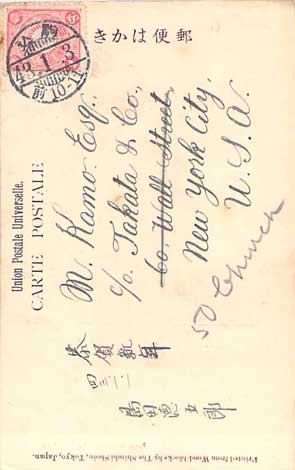 郵便はかき
43.1.3
前10-11
Union Postale Universelle.
CARTE POSTALE
M. Kamo Esq.,
c/o Takata & Co.,
60, Wall Street,
New York City,
U.S.A.
50 Church
恭賀新年
四三、一、一
五郎
Printed from Wood-blocks by The Shimbi Shoin, Tokyo, Japan.